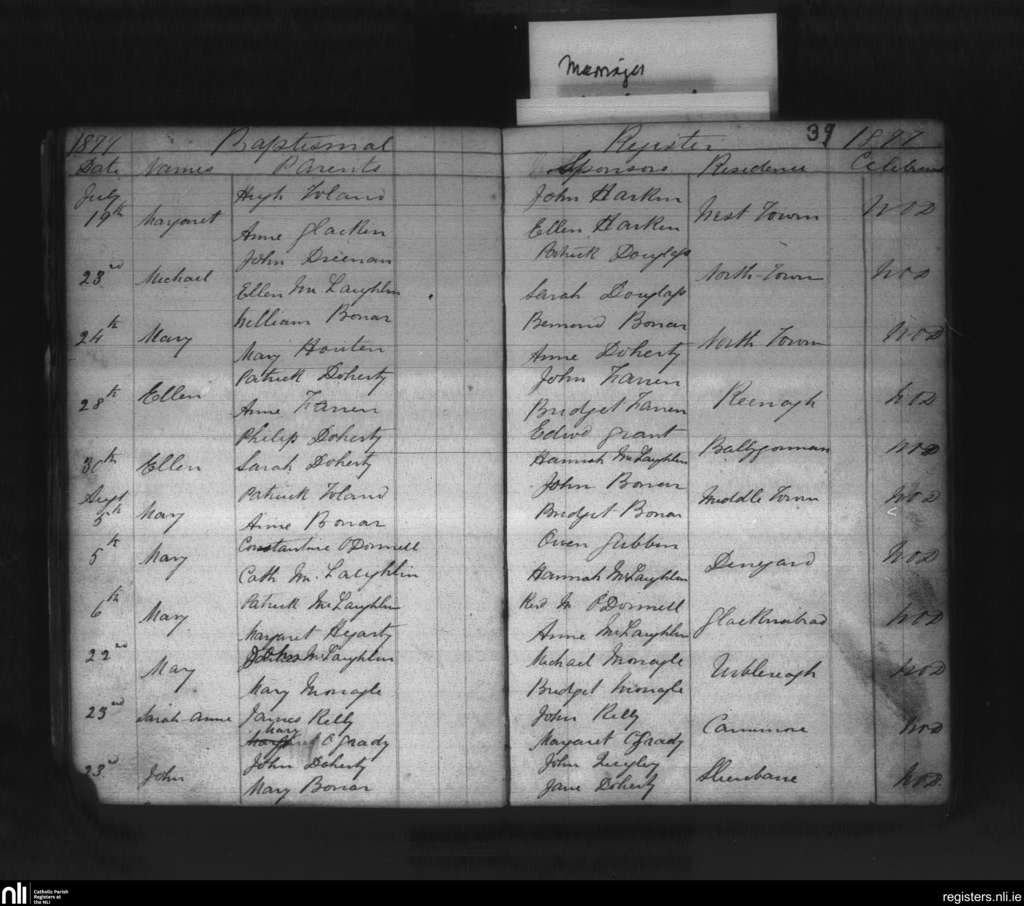 Marriages
39
1877 Baptismal Register 1877
Date Names Parents Sponsors Residence Celebrant
July Hugh Toland John Harkin
19th Margaret West Town WOD
Anne Glacken Ellen Harkin
John Drenan Patrick Douglass
23rd Michael North-Town WOD
Ellen McLaughlin Sarah Douglass
William Bonar Bernard Bonar
24th Mary North Town WOD
Mary Houten Anne Doherty
Patrick Doherty John Farren
28th Ellen Keenagh WOD
Anne Farren Bridget Farren
Philip Doherty Edwd Grant
30th Ellen Ballygorman WOD
Sarah Doherty Hannah McLaughlin
Sept Patrick Toland John Bonar
5th Mary Middle Town WOD
Anne Bonar Bridget Bonar
Constantine O'Donnell Owen Gubbin
5th Mary WOD
Cath McLaughlin Hannah McLaughlin
Patrick McLaughlin Revd M O'Donnell
6th Mary WOD
Margaret Hegarty Anne McLaughlin
22nd John McLaughlin Michael Monagle
Mary Umblereagh WOD
Mary Monagle Bridget Monagle
23rd Sarah-Anne James Kelly John Kelly
Mary Canmore WOD
O'Grady Margaret O'Grady
23rd John Doherty John Quigley
John Sheebane WOD
Mary Bonar Jane Doherty
nli Catholic Parish Registers at the NLI
registers.nli.ie